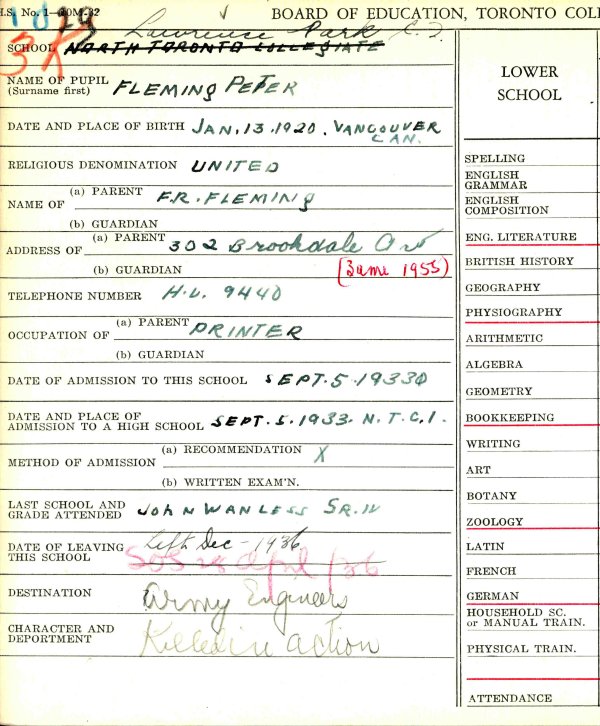 H.S. No. 1—20M-32
BOARD OF EDUCATION, TORONTO COLL
1 d 29
3K
Lawrence Park C. I.
SCHOOL NORTH TORONTO COLLEGIATE
NAME OF PUPIL (Surname first) FLEMING PETER
DATE AND PLACE OF BIRTH JAN. 13. 1920. VANCOUVER
CAN.
RELIGIOUS DENOMINATION UNITED
NAME OF (a) PARENT F.R. FLEMING
(b) GUARDIAN
ADDRESS OF (a) PARENT 302 Brookdale Ave
(b) GUARDIAN (Same 1955)
TELEPHONE NUMBER H.U. 9440
OCCUPATION OF (a) PARENT PRINTER
(b) GUARDIAN
DATE OF ADMISSION TO THIS SCHOOL SEPT. 5. 1933
DATE AND PLACE OF
ADMISSION TO A HIGH SCHOOL SEPT. 5. 1933. N.T.C.I.
METHOD OF ADMISSION (a) RECOMMENDATION X
(b) WRITTEN EXAM'N.
LAST SCHOOL AND
GRADE ATTENDED JOHN WANLESS SR. IV
DATE OF LEAVING
THIS SCHOOL Left Dec - 1936
SOS 28 April/36
DESTINATION Army Engineers
CHARACTER AND
DEPORTMENT Killed in action
LOWER
SCHOOL
SPELLING
ENGLISH
GRAMMAR
ENGLISH
COMPOSITION
ENG. LITERATURE
BRITISH HISTORY
GEOGRAPHY
PHYSIOGRAPHY
ARITHMETIC
ALGEBRA
GEOMETRY
BOOKKEEPING
WRITING
ART
BOTANY
ZOOLOGY
LATIN
FRENCH
GERMAN
HOUSEHOLD SC.
or MANUAL TRAIN.
PHYSICAL TRAIN.
ATTENDANCE